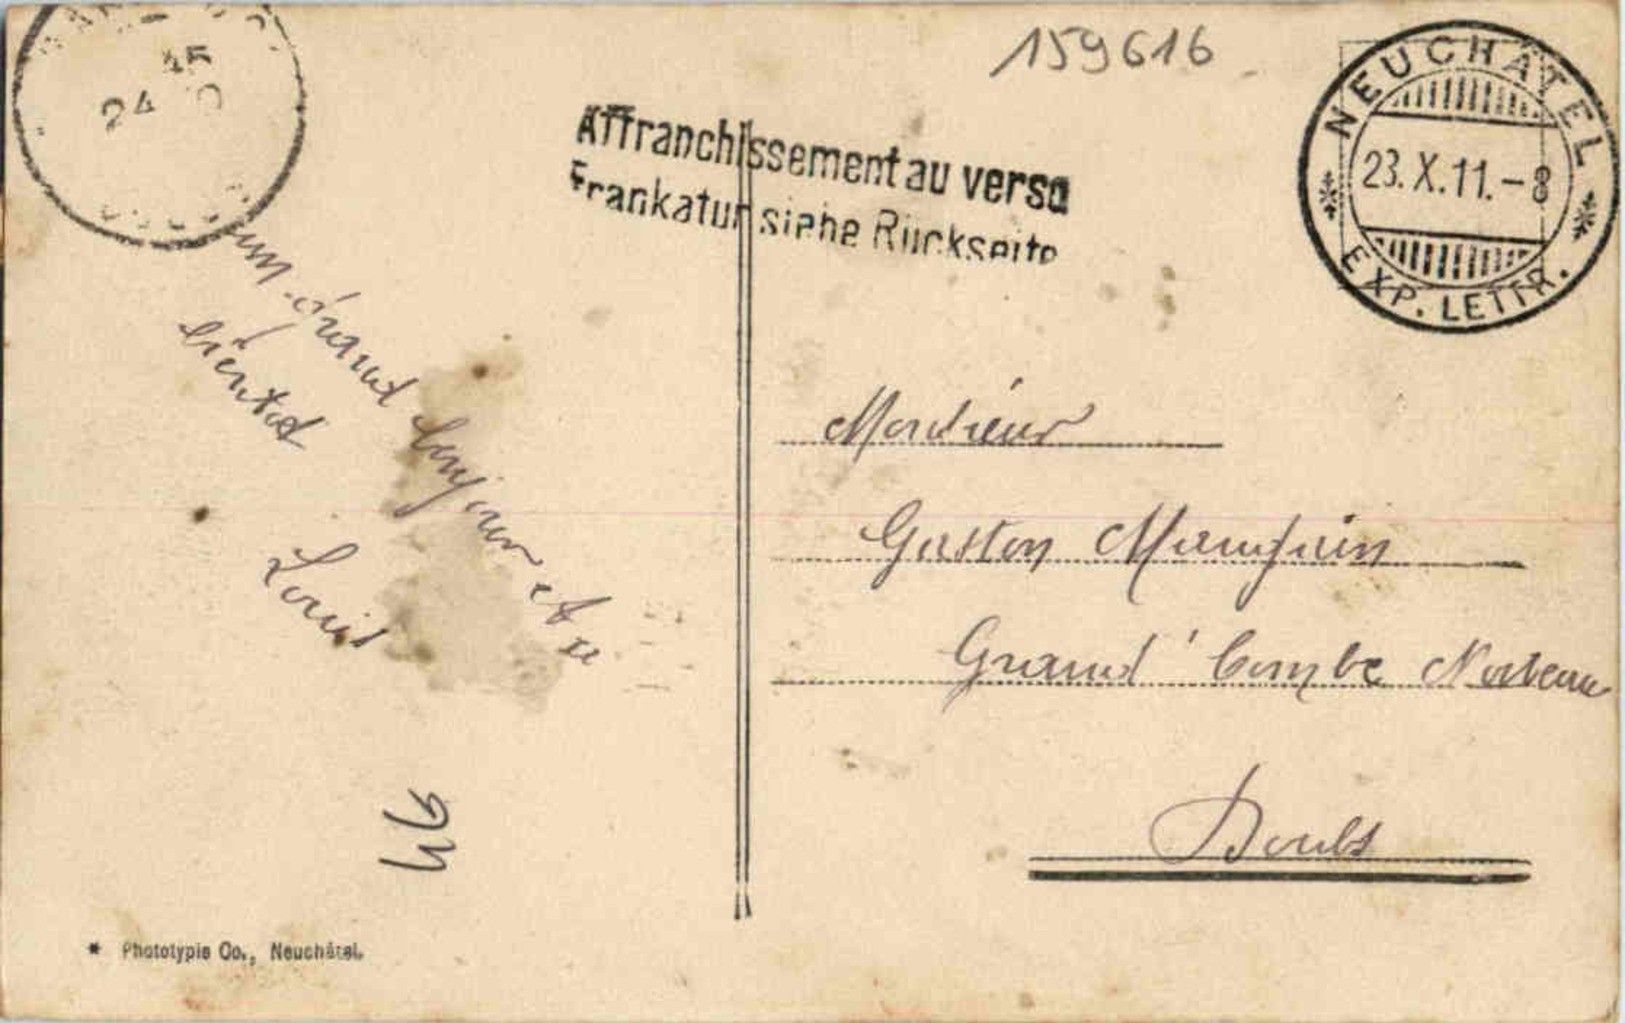 159616
NEUCHÂTEL
23.X.11.-8
EXP. LETTR.
24
15
Affranchissement au verso
Frankatur siehe Rückseite
un grand bonjour et a
bientot
Louis
Monsieur
Gaston
Grand'Combe
Doubs
* Phototypie Co., Neuchâtel.